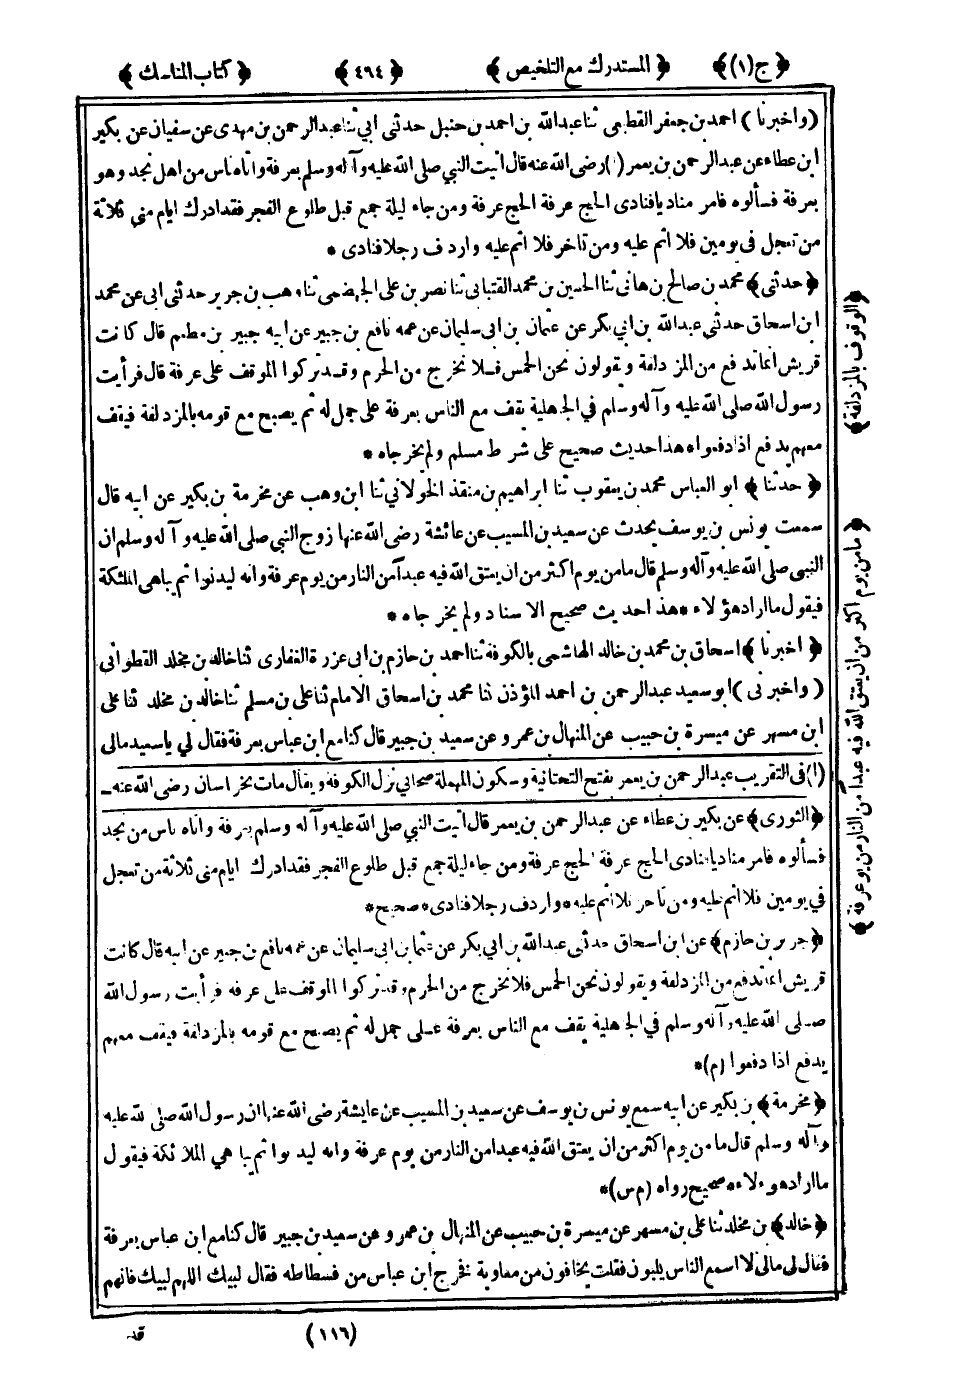 ﴿ج(١)﴾ ﴿المستدرك مع التلخيص﴾ ﴿٤٦٤﴾ ﴿كتاب المناسك﴾
(واخبرنا) احمد بن جعفر القطيعى ثنا عبدالله بن احمد بن حنبل حدثى ابي ثنا عبدالرحمن بن مهدى عن سفيان عن بكير
ابن عطاء عن عبدالرحمن بن يعمر(١) رضى الله عنه قال اتيت النبي صلى الله عليه وآله وسلم بعرفة واتاه ناس من اهل نجد وهو
بعرفة فسألوه فامر مناديا فنادى الحج عرفة الحج عرفة ومن جاء ليلة جمع قبل طلوع الفجر فقد ادرك ايام منى ثلاثة
من تعجل فى يومين فلا اثم عليه ومن تاخر فلا اثم عليه واردف رجلا فنادى *
﴿حدثنى﴾ محمد بن صالح بن هانى ثنا الحسين بن محمد القتبانى ثنا نصر بن على الجهضمى ثنا وهب بن جرير حدثنى ابى عن محمد
ابن اسحاق حدثنى عبدالله بن ابي بكر عن عثمان بن ابى سليمان عن عمه نافع بن جبير عن ابيه جبير بن مطعم قال كانت
قريش انما تدفع من المزدلفة ويقولون نحن الحمس فلا نخرج من الحرم وقد تركوا الموقف على عرفة قال فرأيت
رسول الله صلى الله عليه وآله وسلم في الجاهلية يقف مع الناس بعرفة على جمل له ثم يصبح مع قومه بالمزدلفة فيقف
معهم يدفع اذا دفعوا * هذا حديث صحيح على شرط مسلم ولم يخرجاه *
﴿حدثنا﴾ ابو العباس محمد بن يعقوب ثنا ابراهيم بن منقذ الخولاني ثنا ابن وهب عن مخرمة بن بكير عن ابيه قال
سمعت يونس بن يوسف يحدث عن سعيد بن المسيب عن عائشة رضى الله عنها زوج النبي صلى الله عليه وآله وسلم ان
النبى صلى الله عليه وآله وسلم قال ما من يوم اكثر من ان يعتق الله فيه عبدا من النار من يوم عرفة وانه ليدنوا ثم يباهى الملئكة
فيقول ما اراد هؤلاء * هذا حديث صحيح الاسناد ولم يخرجاه *
﴿اخبرنا﴾ اسحاق بن محمد بن خالد الهاشمى بالكوفة ثنا احمد بن حازم بن ابى عزرة الغفارى ثنا خالد بن مخلد القطوانى
(واخبرنى) ابو سعيد عبدالرحمن بن احمد المؤذن ثنا محمد بن اسحاق الامام ثنا على بن مسلم ثنا خالد بن مخلد ثنا على
ابن مسهر عن ميسرة بن حبيب عن المنهال بن عمرو عن سعيد بن جبير قال كنا مع ابن عباس بعرفة فقال لي يا سعيد مالى
(١) فى التقريب عبدالرحمن بن يعمر بفتح التحتانية وسكون المهملة صحابي نزل الكوفة ويقال مات بخراسان رضى الله عنه ــ
﴿الثورى﴾ عن بكير بن عطاء عن عبدالرحمن بن يعمر قال اتيت النبي صلى الله عليه وآله وسلم بعرفة واتاه ناس من نجد
فسألوه فامر مناديا ينادى الحج عرفة الحج عرفة ومن جاء ليلة جمع قبل طلوع الفجر فقد ادرك ايام منى ثلاثة من تعجل
في يومين فلا اثم عليه ومن تاخر فلا اثم عليه * واردف رجلا فنادى * صحيح *
﴿جرير بن حازم﴾ عن ابن اسحاق حدثنى عبدالله بن ابي بكر عن عثمان بن ابى سليمان عن عمه نافع بن جبير عن ابيه قال كانت
قريش انما تدفع من المزدلفة ويقولون نحن الحمس فلا نخرج من الحرم وقد تركوا الموقف على عرفه فرأيت رسول الله
صلى الله عليه وآله وسلم في الجاهلية يقف مع الناس بعرفة على جمل له ثم يصبح مع قومه بالمزدلفة فيقف معهم
يدفع اذا دفعوا (م)*
﴿مخرمة﴾ بن بكير عن ابيه سمع يونس بن يوسف عن سعيد بن المسيب عن عايشة رضى الله عنها ان رسول الله صلى الله عليه
وآله وسلم قال ما من يوم اكثر من ان يعتق الله فيه عبدا من النار من يوم عرفة وانه ليدنوا ثم يباهي الملائكة فيقول
ما اراد هؤلاء * صحيح رواه (م س)*
﴿خالد﴾ بن مخلد ثنا على بن مسهر عن ميسرة بن حبيب عن المنهال بن عمرو عن سعيد بن جبير قال كنا مع ابن عباس بعرفة
فقال لى مالى لا اسمع الناس يلبون فقلت يخافون من معاوية فخرج ابن عباس من فسطاطه فقال لبيك اللهم لبيك فانهم
(١١٦) قد
﴿الوقوف بالمزدلفة﴾
﴿ما من يوم اكثر من ان يعتق الله فيه عبداً من النار من يوم عرفة﴾